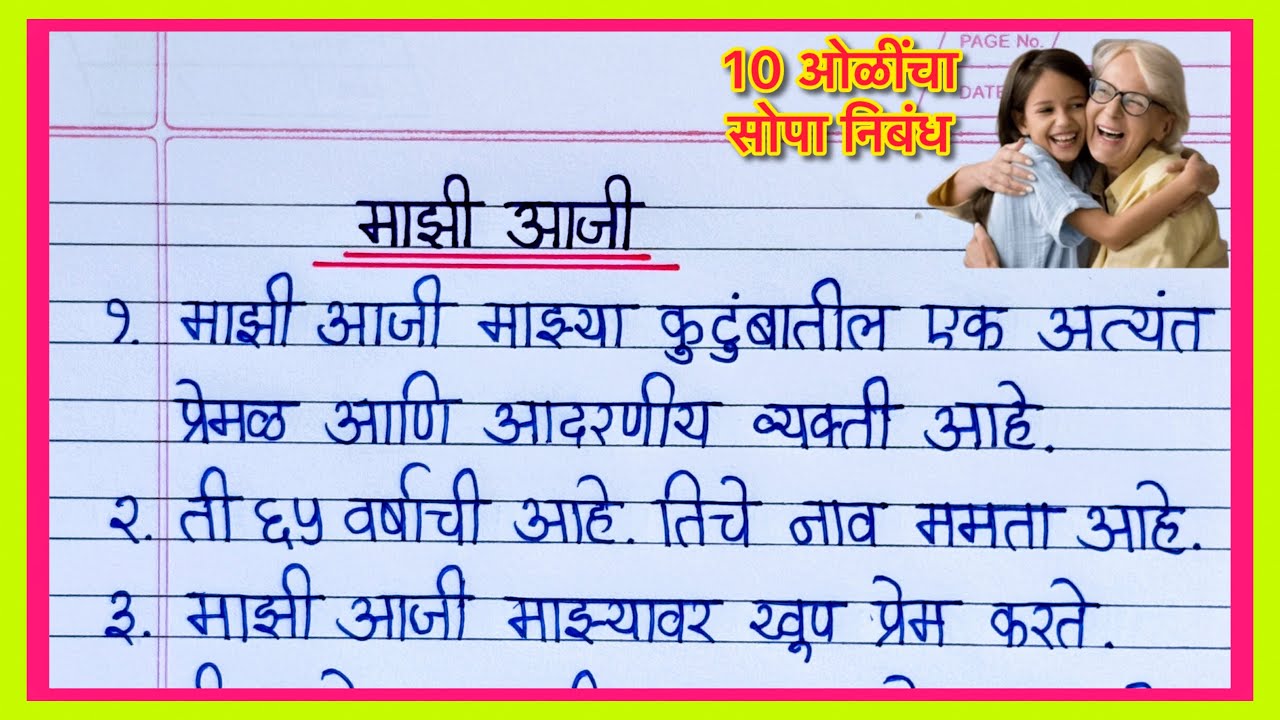 PAGE No.
DATE
10 ओळींचा
सोपा निबंध
माझी आजी
१. माझी आजी माझ्या कुटुंबातील एक अत्यंत
प्रेमळ आणि आदरणीय व्यक्ती आहे.
२. ती ६५ वर्षाची आहे. तिचे नाव ममता आहे.
३. माझी आजी माझ्यावर खूप प्रेम करते.